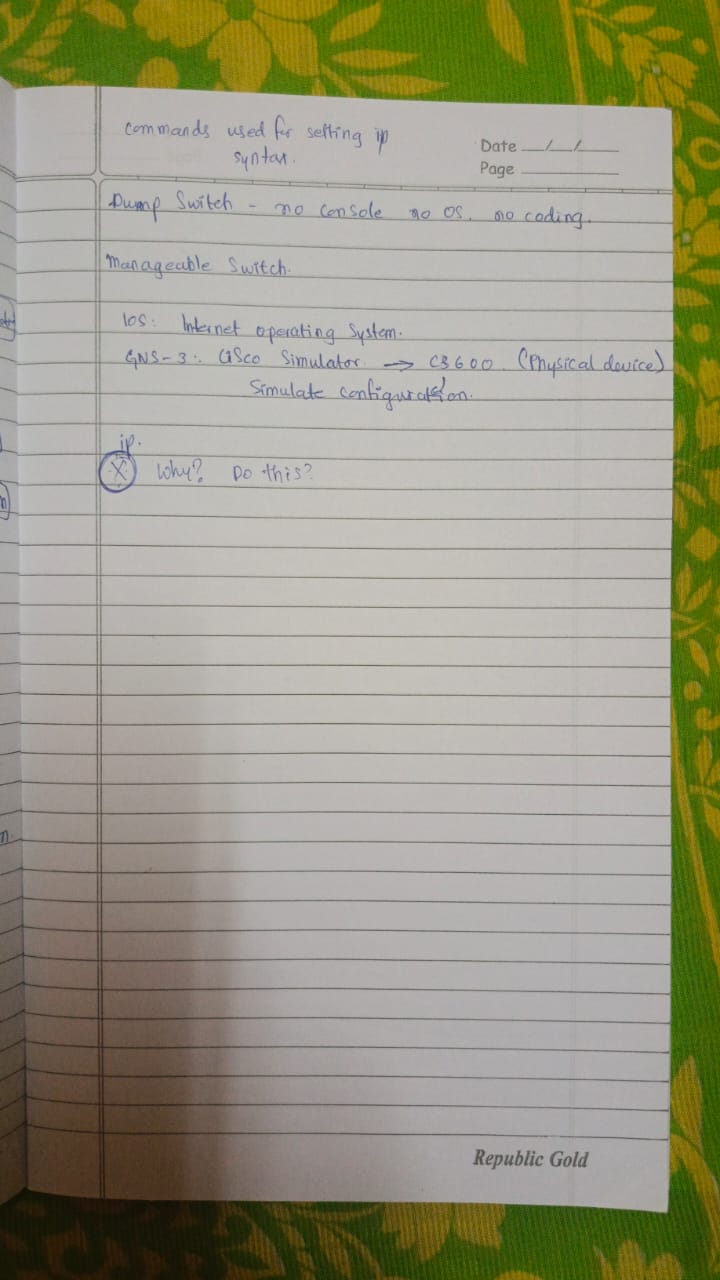 Commands used for setting ip
syntax.
Date __/__/__
Page
Dump Switch - no console no OS, no coding.
Manageable Switch.
IOS: Internet operating System.
GNS-3: Cisco Simulator → C3600. (Physical device)
Simulate configuration.
ip.
X Why? Do this?
Republic Gold